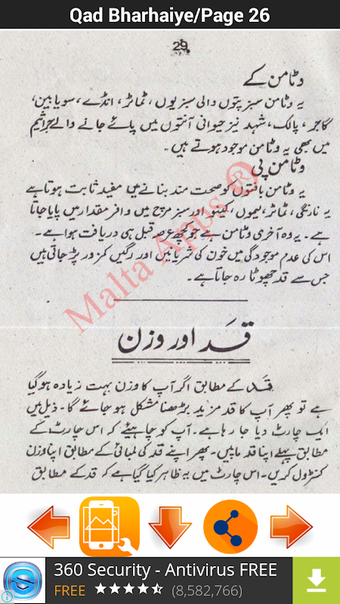 Qad Bharhaiye/Page 26
29
وٹامن کے
یہ وٹامن سبز پتوں والی سبزیوں، ٹماٹر، انڈے، سویابین،
گاجر، پالک، شہد نیز حیوانی آنتوں میں پائے جانے والے جراثیم
میں بھی یہ وٹامن موجود ہوتے ہیں۔
وٹامن پی
یہ وٹامن بافتوں کو صحت مند بنانے میں مفید ثابت ہوتا ہے
یہ نارنگی، ٹماٹر، لیموں، کینو اور سبز مرچ میں وافر مقدار میں پایا جاتا
ہے۔ یہ وہ آخری وٹامن ہے جو کچھ عرصہ قبل ہی دریافت ہوا ہے۔
اس کی عدم موجودگی میں خون کی شریانیں اور رگیں کمزور پڑ جاتی ہیں
جس سے قد چھوٹا رہ جاتا ہے۔
Malta Apps ®
قد اور وزن
قد کے مطابق اگر آپ کا وزن بہت زیادہ ہو گیا
ہے تو پھر آپ کا قد مزید بڑھنا مشکل ہو جائے گا۔ ذیل میں
ایک چارٹ دیا جا رہا ہے۔ آپ کو چاہیئے کہ اس چارٹ کے
مطابق پہلے اپنا قد ماپیں۔ پھر اپنے قد کی لمبائی کے مطابق اپنا وزن
کنٹرول کریں۔ اس چارٹ میں یہ ظاہر کیا گیا ہے کہ قد کے مطابق
360 Security - Antivirus FREE
FREE (8,582,766)